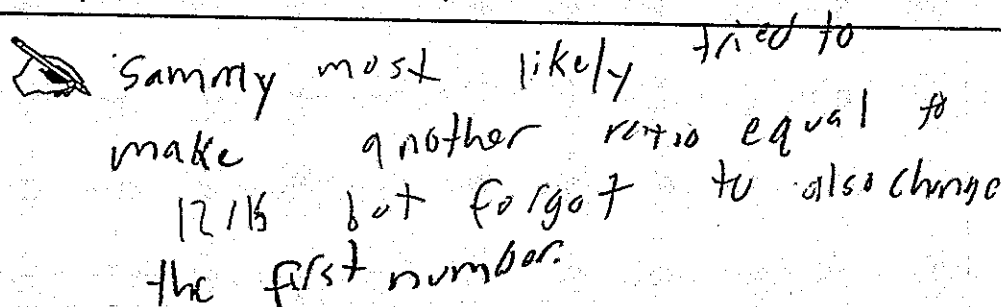 Sammy most likely tried to
make another ratio equal to
but forgot to also change
the first number.